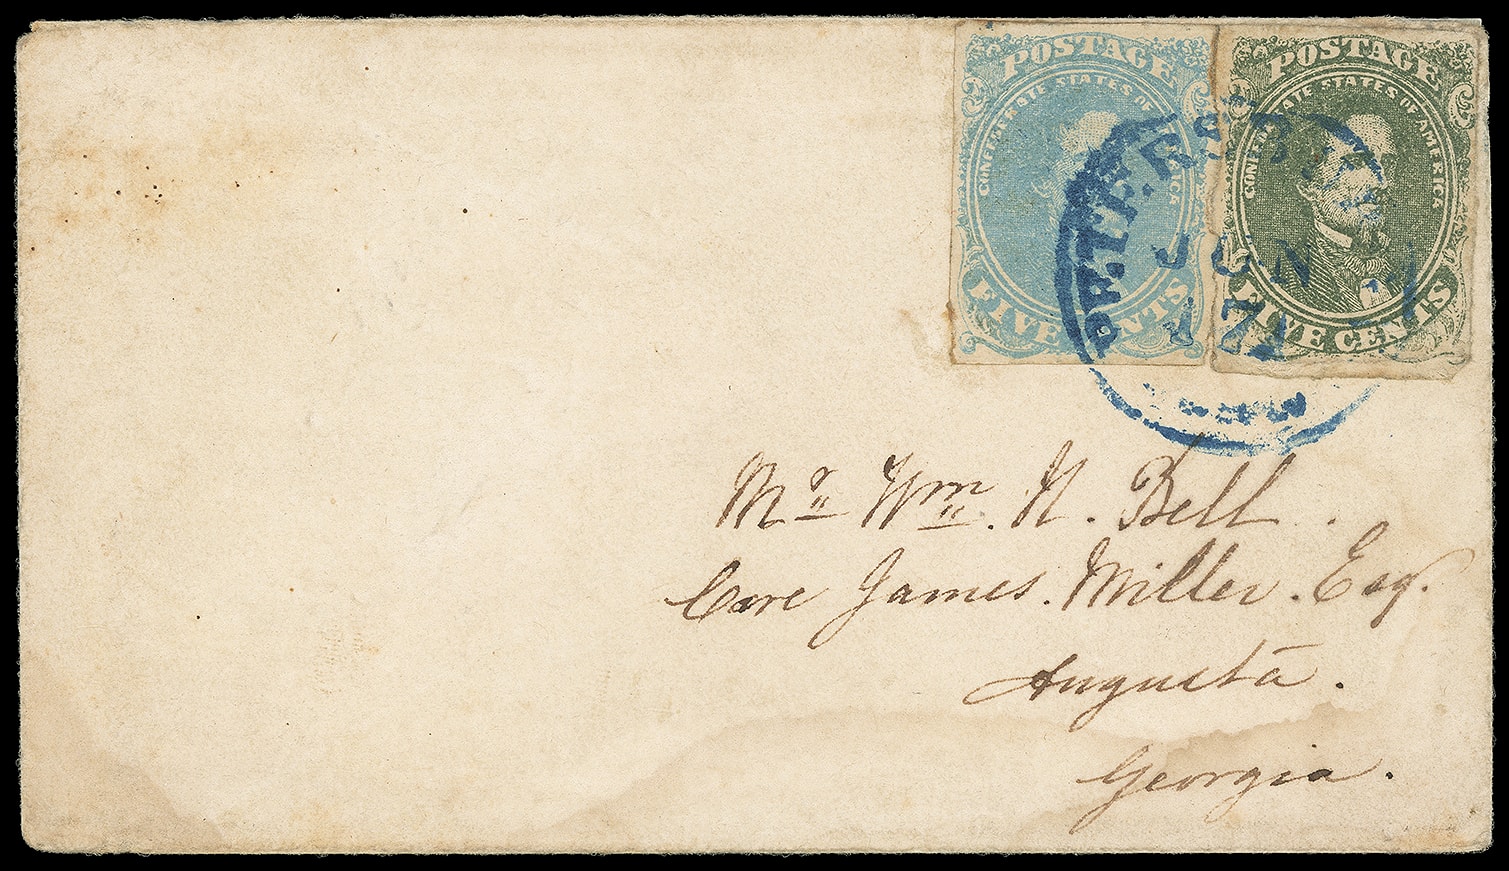 POSTAGE
CONFEDERATE STATES OF AMERICA
FIVE CENTS
POSTAGE
CONFEDERATE STATES OF AMERICA
FIVE CENTS
PETERSBURG
JUN
Mr. Wm. N. Bell.
Care James. Miller. Esq.
Augusta.
Georgia.